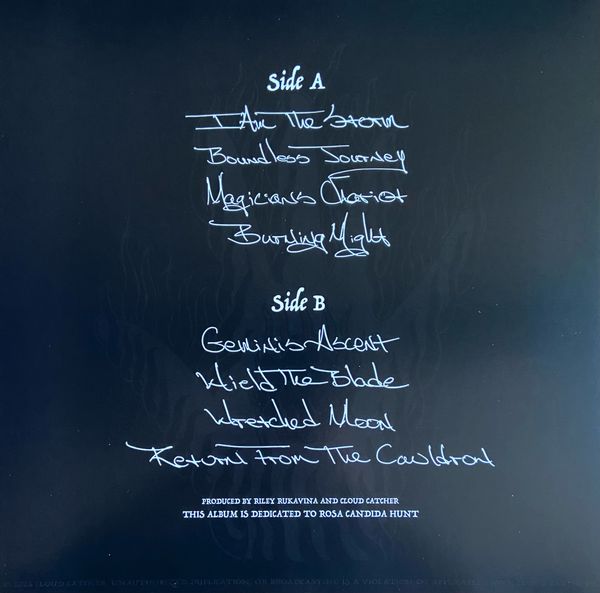 Side A
I Am The Storm
Boundless Journey
Magicians Chariot
Burning Might
Side B
Geminis Ascent
Wield The Blade
Wretched Moon
Return From The Cauldron
PRODUCED BY RILEY RUKAVINA AND CLOUD CATCHER
THIS ALBUM IS DEDICATED TO ROSA CANDIDA HUNT
CLOUD CATCHER. UNAUTHORIZED DUPLICATION, OR BROADCASTING IS A VIOLATION OF